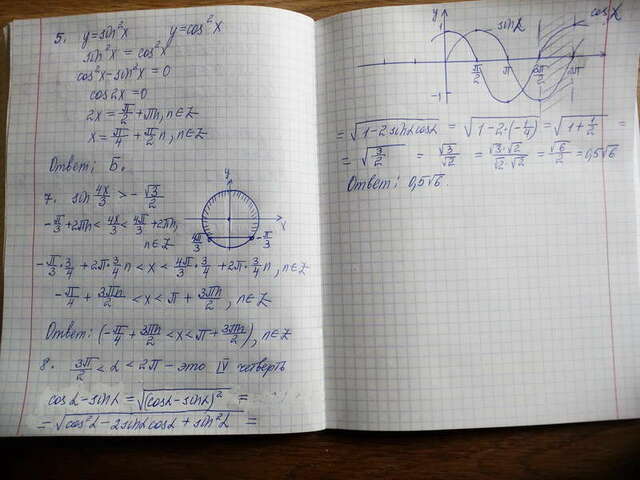 5. y=sin²x y=cos²x
sin²x = cos²x
cos²x-sin²x = 0
cos2x=0
2x=π/2+πn, n∈Z
x=π/4+π/2n, n∈Z
Ответ: Б.
7. sin 4x/3 > -√3/2
-π/3+2πn < 4x/3 < 4π/3+2πn,
n∈Z
y
x
4π/3
-π/3
-π/3·3/4+2π·3/4n < x < 4π/3·3/4+2π·3/4n, n∈Z
-π/4+3πn/2 < x < π+3πn/2, n∈Z
Ответ: (-π/4+3πn/2 < x < π+3πn/2), n∈Z
8. 3π/2 < α < 2π - это IV четверть
cosα-sinα = √(cosα-sinα)² =
=√cos²α-2sinαcosα+sin²α =
y
sinα
cosα
1
π/2
π
3π/2
2π
-1
=√1-2sinαcosα = √1-2·(-1/4) = √1+1/2 =
=√3/2 = √3/√2 = √3·√2/√2·√2 = √6/2 = 0,5√6
Ответ: 0,5√6.